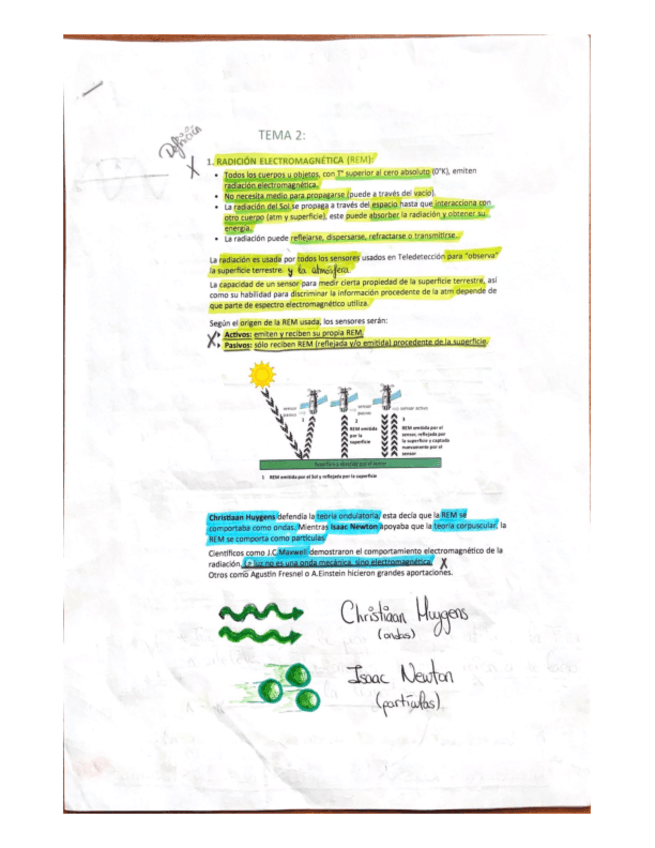 TEMA 2:
Definición
1. RADICIÓN ELECTROMAGNÉTICA (REM):
• Todos los cuerpos u objetos, con Tª superior al cero absoluto (0°K), emiten
radiación electromagnética.
• No necesita medio para propagarse (puede a través del vacío).
• La radiación del Sol se propaga a través del espacio hasta que interacciona con
otro cuerpo (atm y superficie), este puede absorber la radiación y obtener su
energía.
• La radiación puede reflejarse, dispersarse, refractarse o transmitirse.
La radiación es usada por todos los sensores usados en Teledetección para "observa"
la superficie terrestre. y la atmósfera.
La capacidad de un sensor para medir cierta propiedad de la superficie terrestre, así
como su habilidad para discriminar la información procedente de la atm depende de
que parte de espectro electromagnético utiliza.
Según el origen de la REM usada, los sensores serán:
Activos: emiten y reciben su propia REM.
Pasivos: sólo reciben REM (reflejada y/o emitida) procedente de la superficie.
sensor pasivo
1
sensor pasivo
2
REM emitida
por la
superficie
sensor activo
3
REM emitida por el
sensor, reflejada por
la superficie y captada
nuevamente por el
sensor
Superficie a observar por el sensor
1 REM emitida por el Sol y reflejada por la superficie
Christiaan Huygens defendía la teoría ondulatoria, esta decía que la REM se
comportaba como ondas. Mientras Isaac Newton apoyaba que la teoría corpuscular, la
REM se comporta como partículas
Científicos como J.C.Maxwell demostraron el comportamiento electromagnético de la
radiación. La luz no es una onda mecánica, sino electromagnética.
Otros como Agustín Fresnel o A.Einstein hicieron grandes aportaciones.
Christiaan Huygens
(ondas)
Isaac Newton
(partículas)